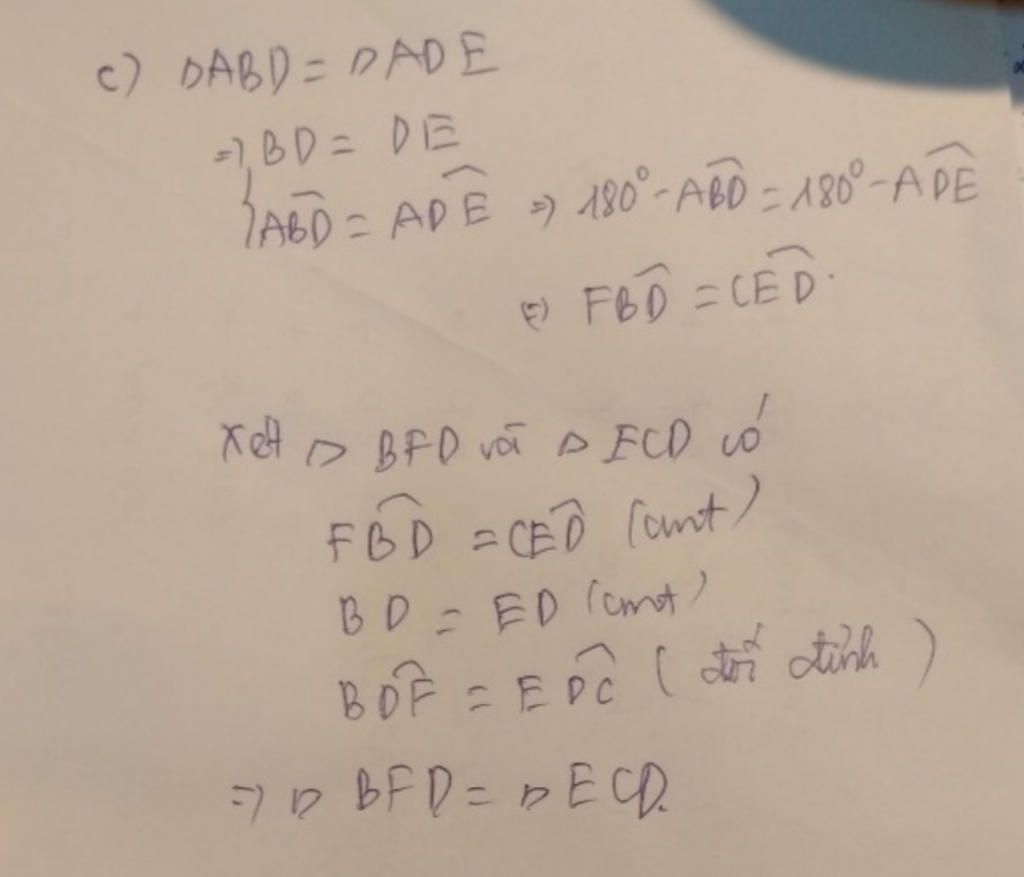 c) ΔABD = ΔADE
=> BD = DE
{ AB̂D = AD̂E => 180° - AB̂D = 180° - AD̂E
<=> FB̂D = CÊD.
Xét Δ BFD và Δ ECD có
FB̂D = CÊD (cmt)
BD = ED (cmt)
BD̂F = ED̂C (đối đỉnh)
=> Δ BFD = Δ ECD.